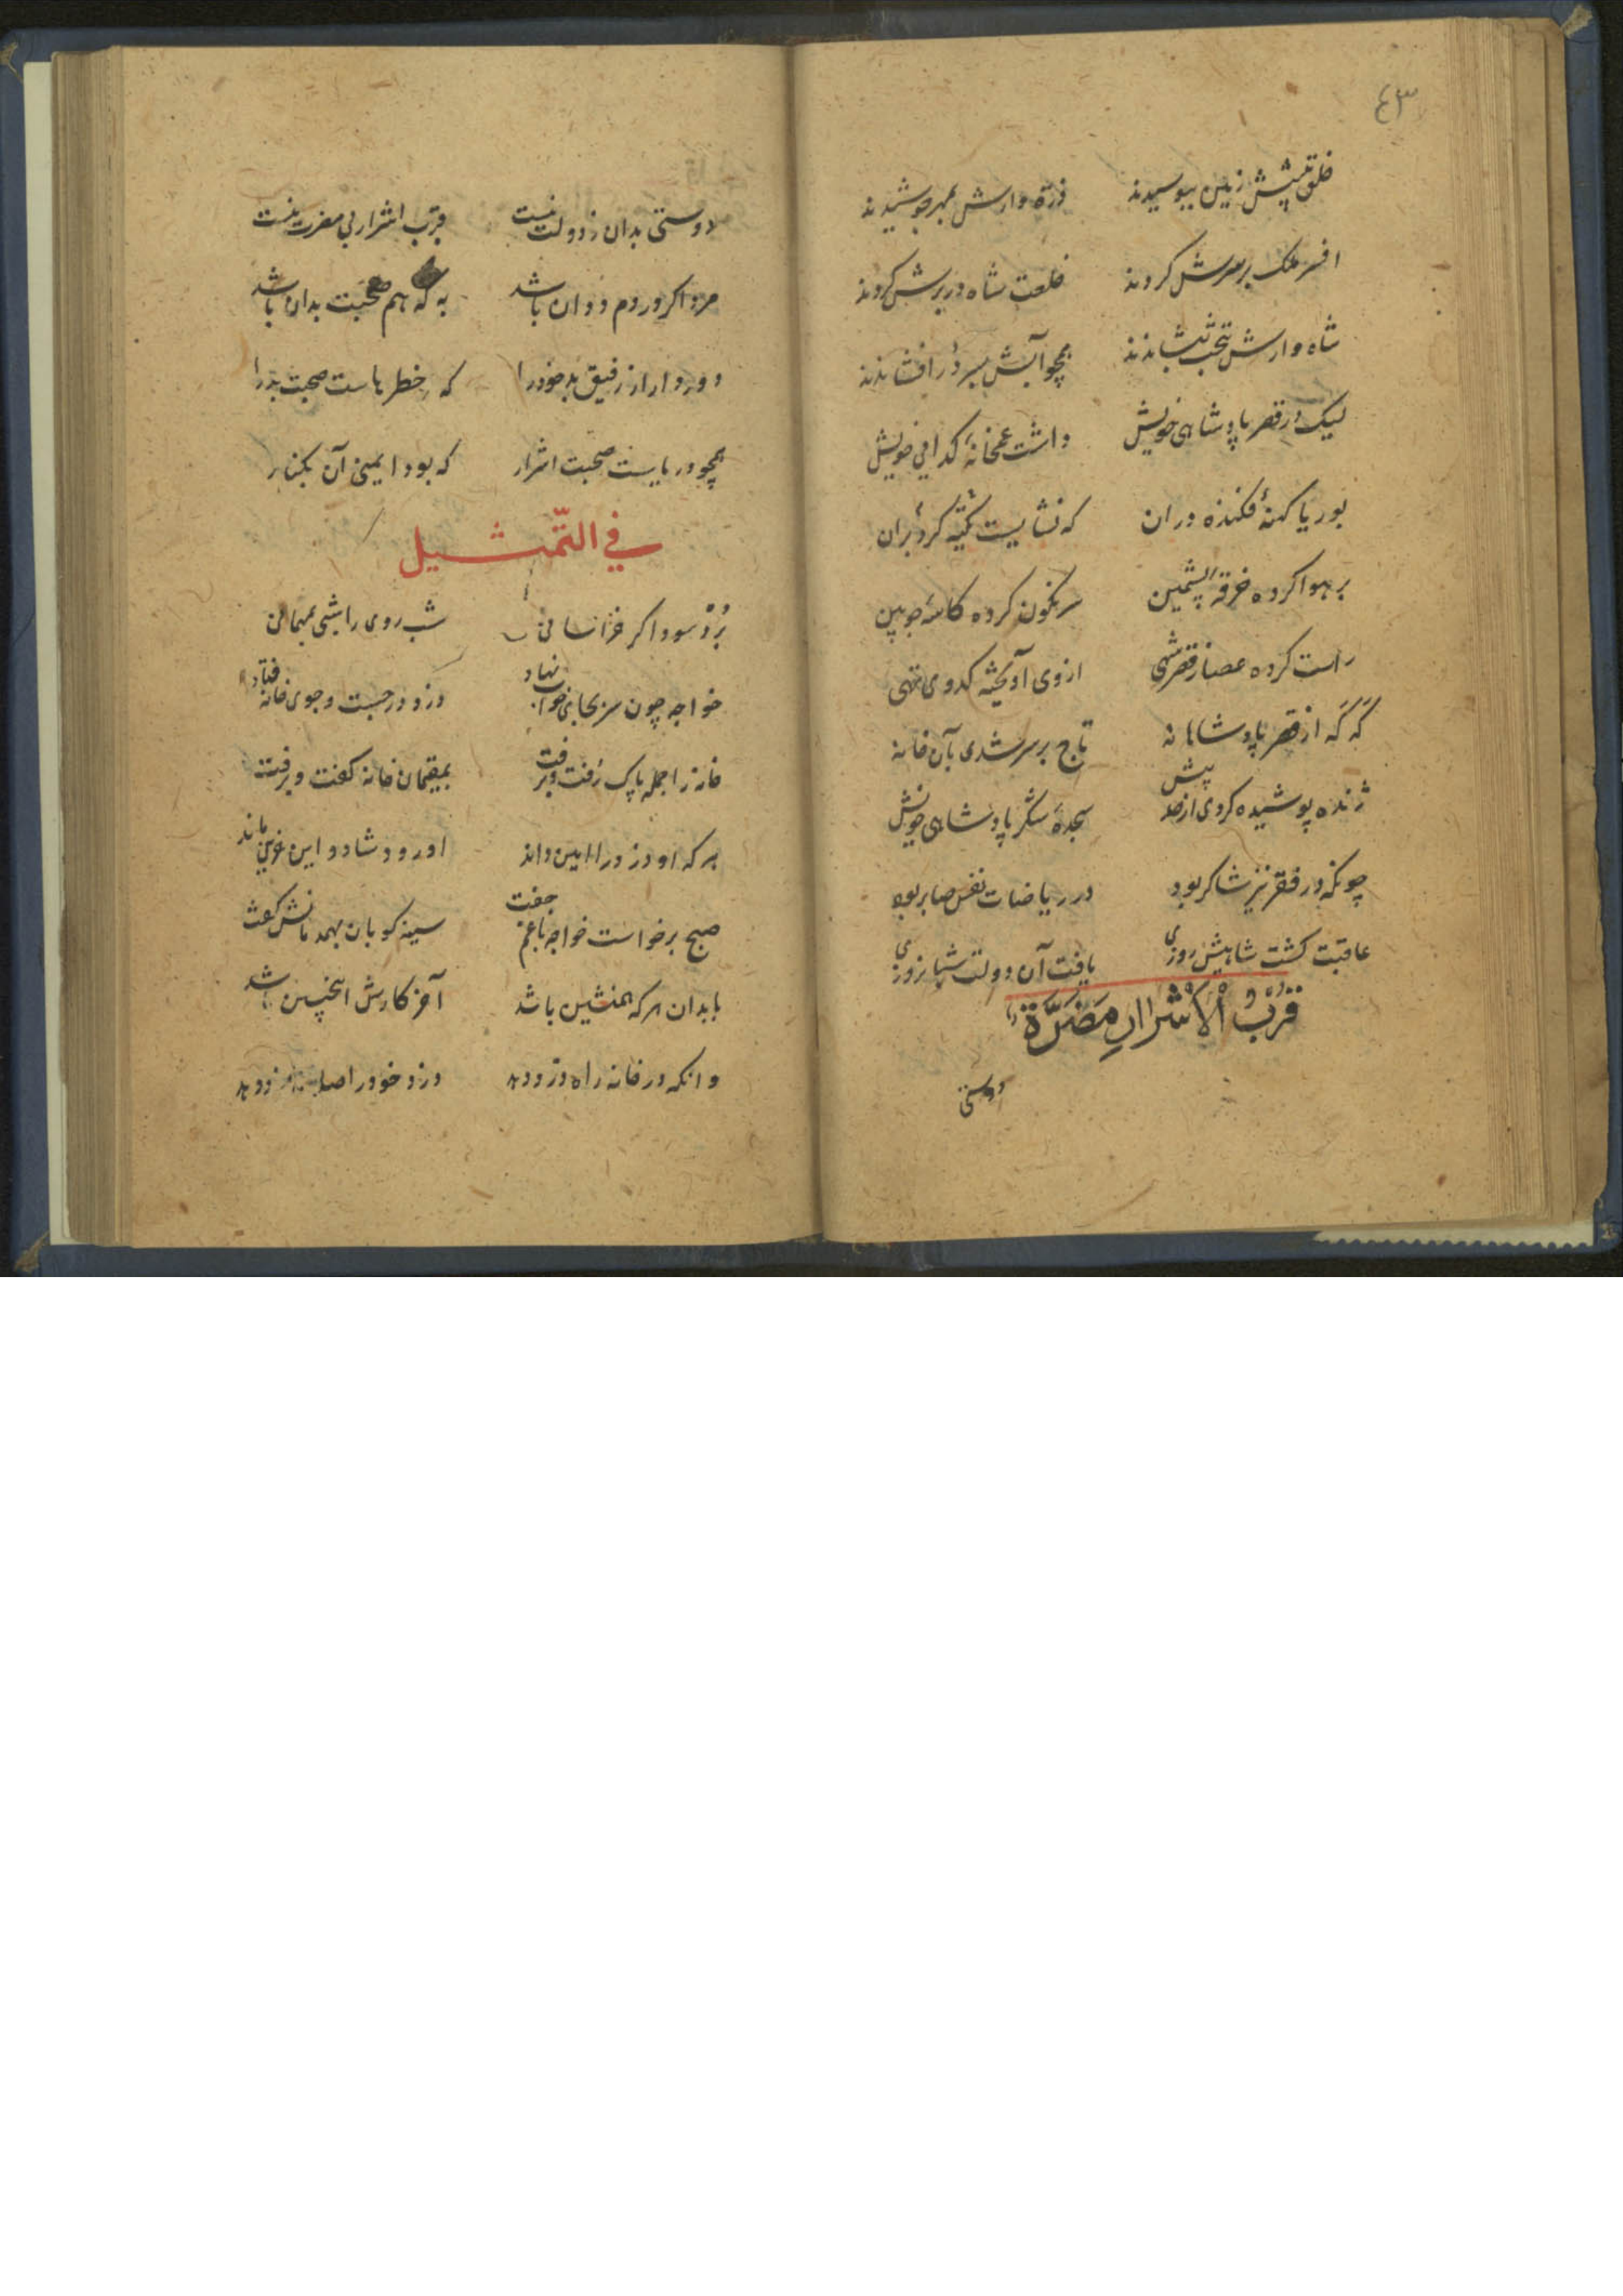 ٤٣
خلق پیشش زمین ببوسیدند ذرّه وارش بمهر جوشیدند
افسر ملک بر سرش کردند خلعت شاه در برش کردند
شاه وارش بتخت بنشاندند همچو آبش بسر دُر افشاندند
لیک در قصر پادشاهی خویش داشت غمخانهٔ کدایی خویش
بوریا کهنهٔ فکنده دران که نشایست تکیه کرد بران
بر هوا کرده خرقهٔ پشمین سرنکون کرده کاسهٔ چوبین
راست کرده عصا ز قصر شهی از وی آویخته کدوی تهی
کَه کَه از قصر پادشاهانه تاج بر سر شدی بآن خانه
ژنده پوشیده کردی از حد پیش سجدهٔ شکر پادشاهی خویش
چونکه در فقر نیز شاکر بود در ریاضات نفس صابر بود
عاقبت کشت شاهیش روزی یافت آن دولت شبانروزی
قُرْبُ الْاَشْرارِ مَضَرَّةٌ
دوستی
دوستی بدان ز دولت نیست قرب اشرار بی مضرت نیست
مرد اکر در دم ددان باشد به که هم صحبت بدان باشد
دور دار از رفیق بد خود را که خطرهاست صحبت بد را
همچو دریاست صحبت اشرار که بود ایمنی آن بکنار
فی التّمثیل
بُرْد سوداکر خراسانی شب روی را شبی بمهمانی
خواجه چون سر بجای خواب نهاد دزد در جست و جوی خانه فتاد
خانه را جمله پاک رُفت و برفت بمقیمان خانه کفت و برفت
هر که او دزد را امین داند او رود شاد و این غمین ماند
صبح برخاست خواجه با غم جفت سینه کوبان بهمدمانش کفت
با بدان هر که همنشین باشد آخر کارش اینچنین باشد
وانکه در خانه راه دزد دهد دزد خود را